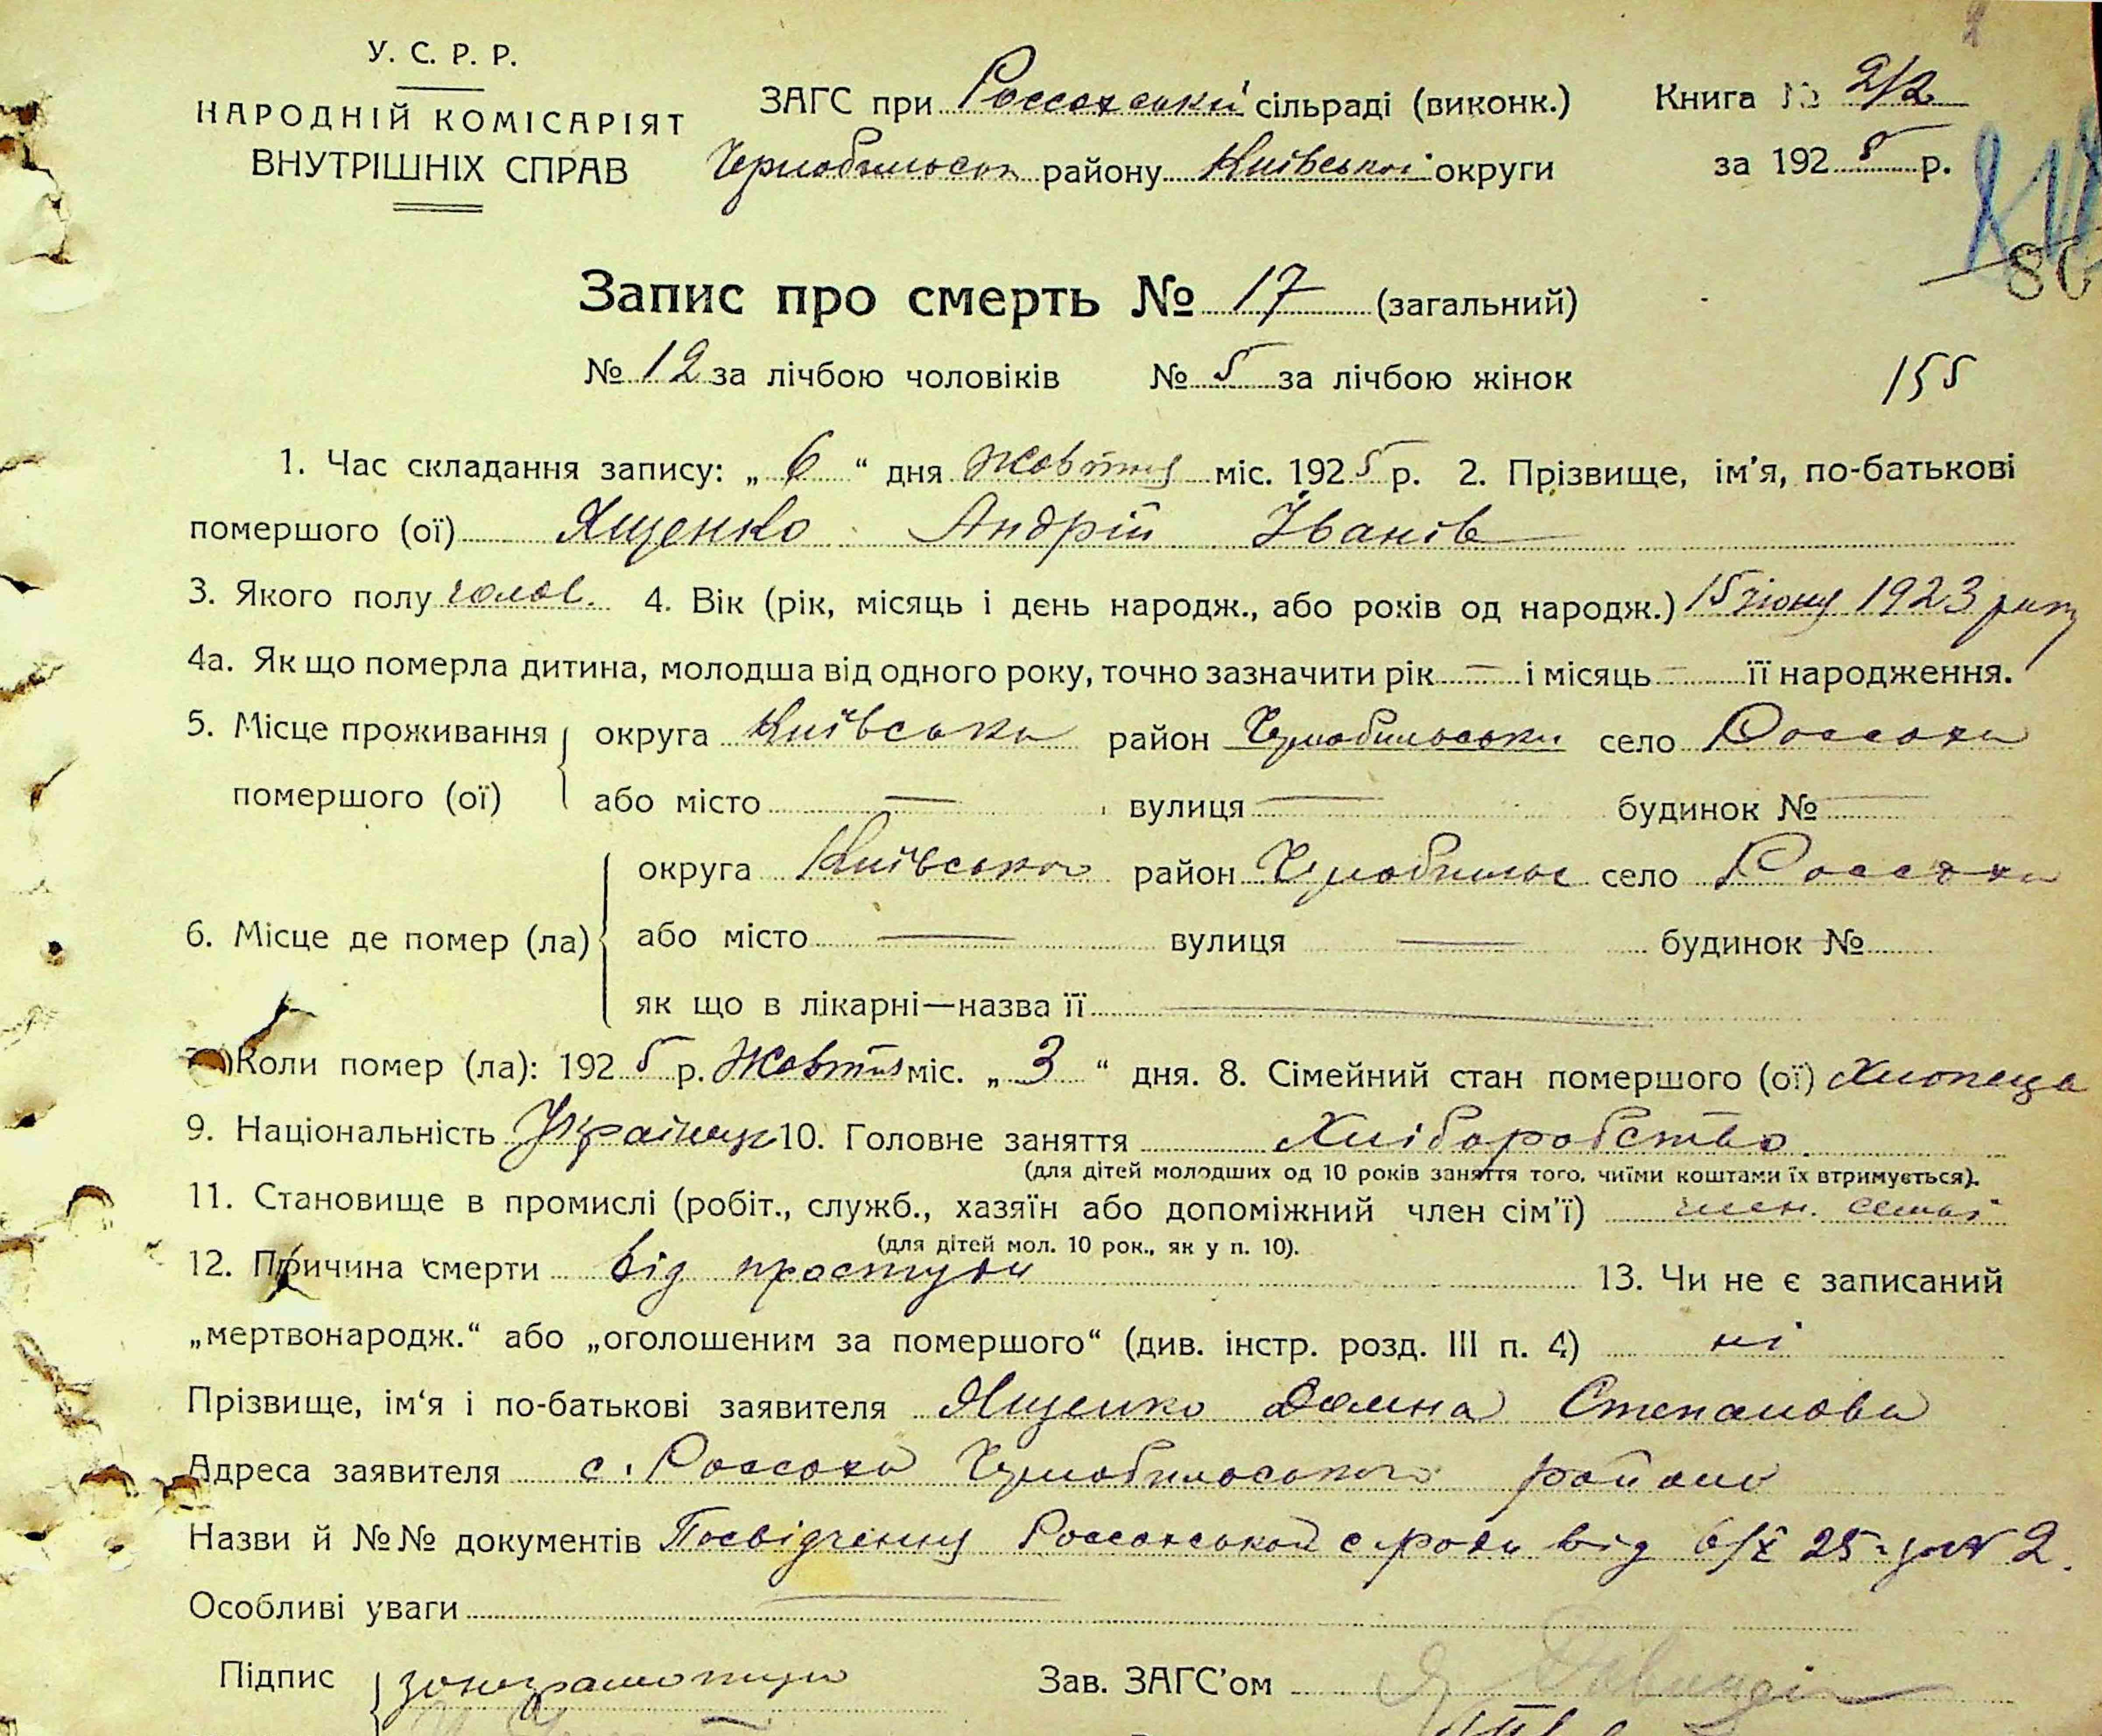 У. С. Р. Р.
НАРОДНІЙ КОМІСАРІЯТ
ВНУТРІШНІХ СПРАВ
ЗАГС при Россохській сільраді (виконк.)
Чернобильськ району Київської округи
Книга № 2/2
за 1925 р.
80
Запис про смерть № 17 (загальний)
№ 12 за лічбою чоловіків № 5 за лічбою жінок
155
1. Час складання запису: „ 6 “ дня Жовтня міс. 1925 р. 2. Прізвище, ім'я, по-батькові
помершого (ої) Ященко Андрій Іванів
3. Якого полу чолов. 4. Вік (рік, місяць і день народж., або років од народж.) 15 іюня 1923 року
4а. Як що померла дитина, молодша від одного року, точно зазначити рік — і місяць — її народження.
5. Місце проживання помершого (ої)
округа Київська район Чернобильськи село Россоха
або місто — вулиця — будинок № —
6. Місце де помер (ла)
округа Київсько район Чернобильс село Россоха
або місто — вулиця — будинок №
як що в лікарні—назва її —
7. Коли помер (ла): 1925 р. Жовтня міс. „ 3 “ дня. 8. Сімейний стан помершого (ої) Хлопець
9. Національність Українець 10. Головне заняття Хліборобство
(для дітей молодших од 10 років заняття того, чиїми коштами їх втримується).
11. Становище в промислі (робіт., служб., хазяїн або допоміжний член сім'ї) член. семьі
(для дітей мол. 10 рок., як у п. 10).
12. Причина смерти від простуди 13. Чи не є записаний
„мертвонародж.“ або „оголошеним за помершого“ (див. інстр. розд. III п. 4) ні
Прізвище, ім'я і по-батькові заявителя Ященко Домна Степанова
Адреса заявителя с. Россоха Чернобильського району
Назви й №№ документів Посвідчення Россохської с ради від 6/X 25 р № 2.
Особливі уваги —
Підпис
Зав. ЗАГС'ом